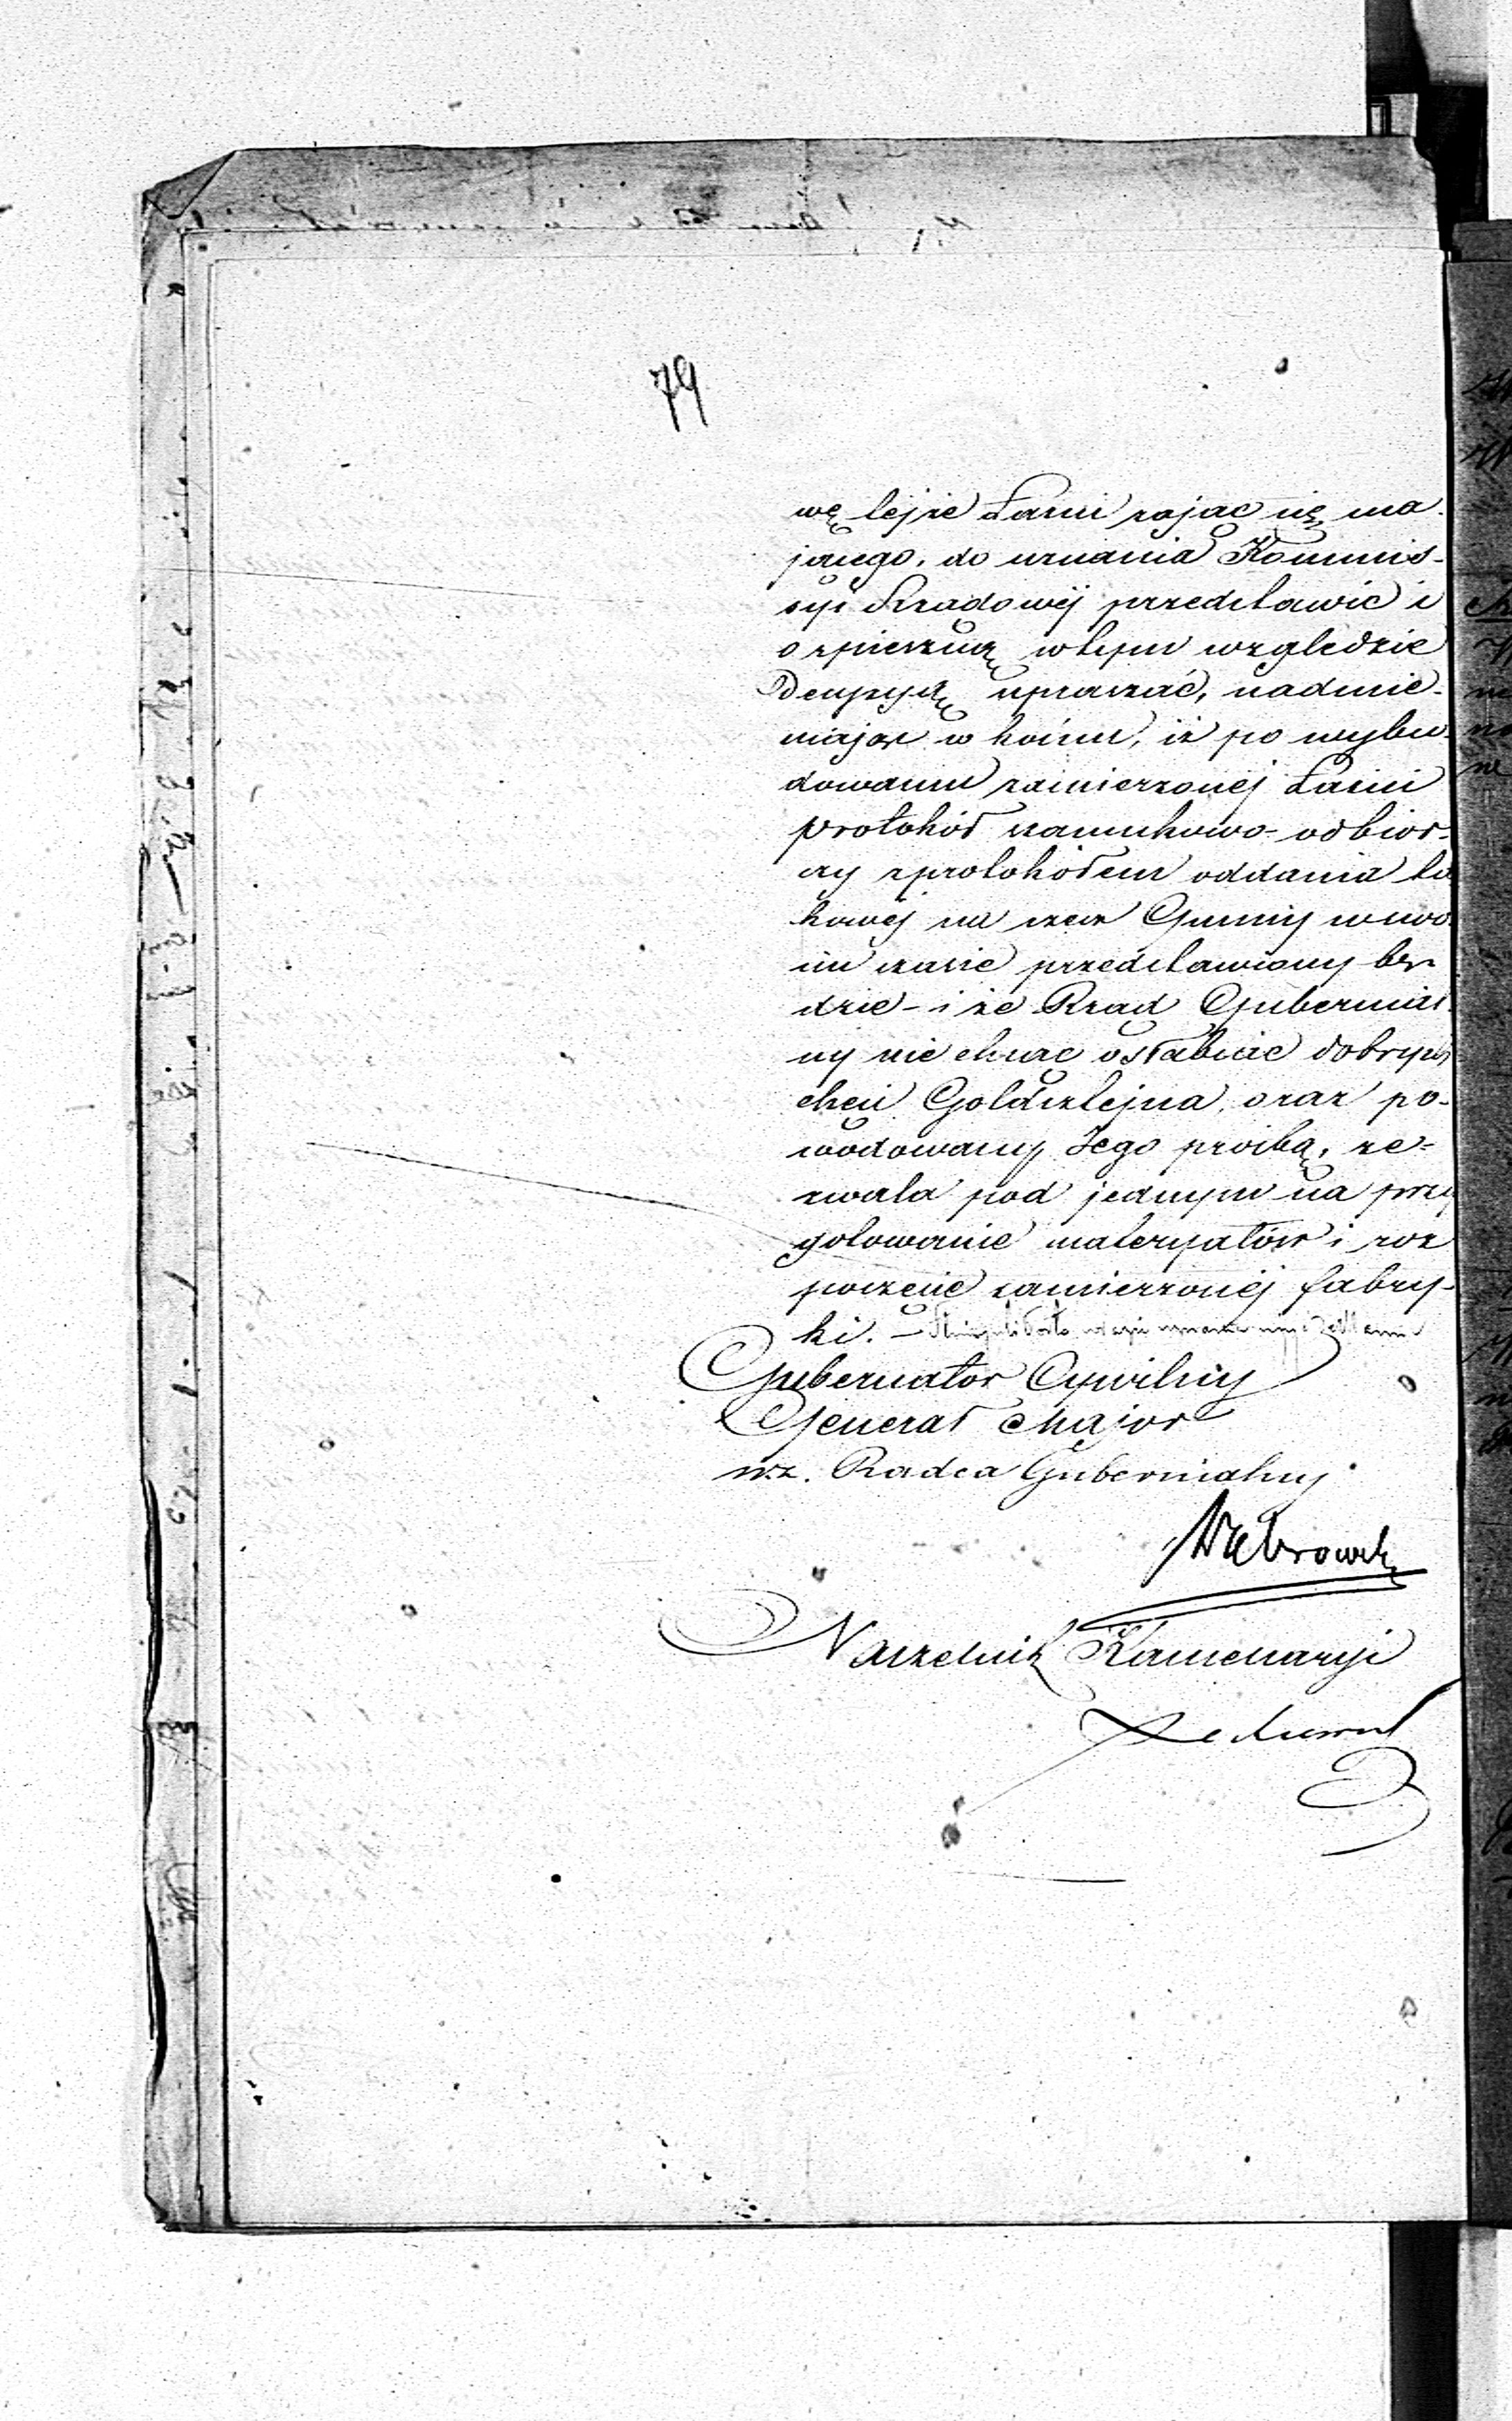 79
wę tejże Łazni zająć się ma-
jącego, do uznania Kommis-
syi Rządowéj przedstawić i
o spieszną w tym względzie
Decyzyą upraszać, nadmie-
niając w końcu, iż po wybu-
dowaniu zamierzonéj Łazni
protokół szacunkowo-odbior-
czy z protokółem oddania ta
kowej na rzecz Gminy w swo
im czasie przedstawiony bę
dzie – i że Rząd Gubernial
ny nie chcąc osłabiać dobrych
chęci Goldsztejna, oraz po-
wodowany Jego prośbą, ze-
zwala pod jednym na przy
gotowanie materyałów i roz
poczęcie zamierzonéj fabry-
ki. –
Gubernator Cywilny
Generał Major
w.z. Radca Gubernialny
Naczelnik Kancellaryi